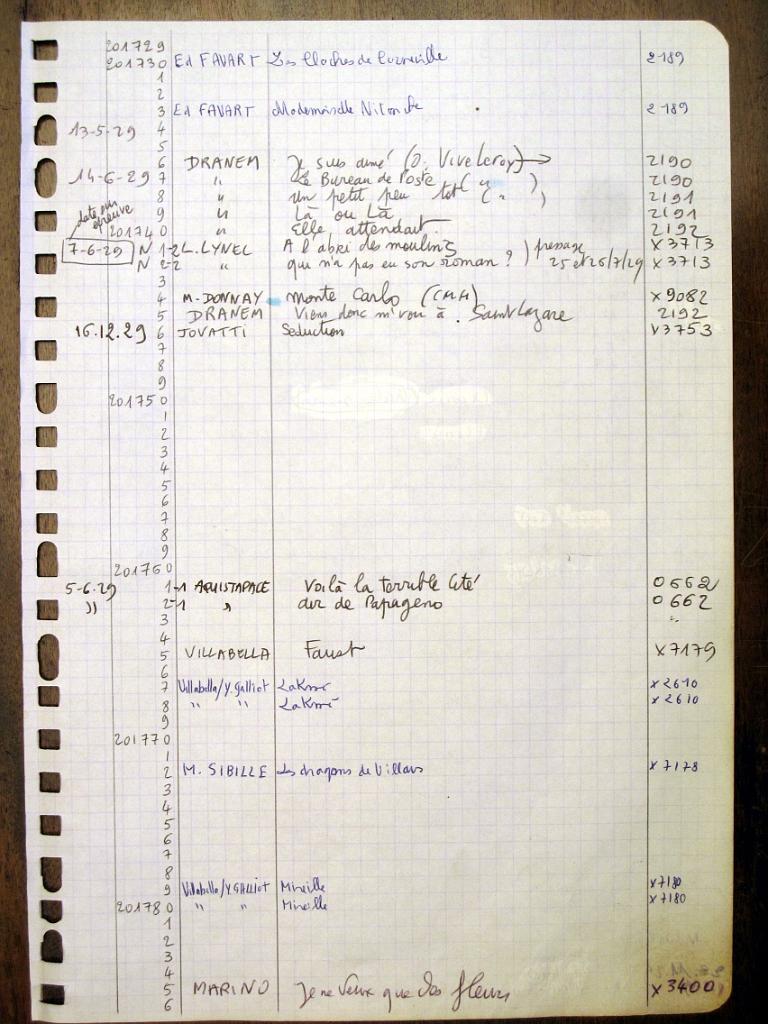 201729
201730 Ed FAVART Les Cloches de Corneville 2189
1
2
3 Ed FAVART Mademoiselle Nitouche 2189
13-5-29 4
5
6 DRANEM Je suis aimé (O. Vive Leroy) 2190
14-6-29 7 " Le Bureau de Poste ( " ) 2190
8 " un petit peu tot ( " ) 2191
date sur épreuve 9 " Là ou Là 2191
201740 " Elle attendait 2192
7-6-29 N 1-2 L. LYNEL A l'abri des moulins ) pressage X3713
N 2-2 " qui n'a pas eu son roman ? ) 25 et 26/7/29 X3713
3
4 M. DONNAY Monte Carlo X9082
5 DRANEM Viens donc m'voir à Saint Lazare 2192
16.12.29 6 JOVATTI Seduction X3753
7
8
9
201750
1
2
3
4
5
6
7
8
9
201760
5-6-29 1-1 AQUISTAPACE Voilà la terrible Cité 0662
" 2-1 " air de Papageno 0662
3
4
5 VILLABELLA Faust X7179
6
7 Villabella/Y. Galliot Lakmé X2610
8 " " Lakmé X2610
9
201770
1
2 M. SIBILLE Les dragons de Villars X7178
3
4
5
6
7
8
9 Villabella/Y. GALLIOT Mireille X7180
201780 " " Mireille X7180
1
2
3
4
5 MARINO Je ne veux que des fleurs X3400
6